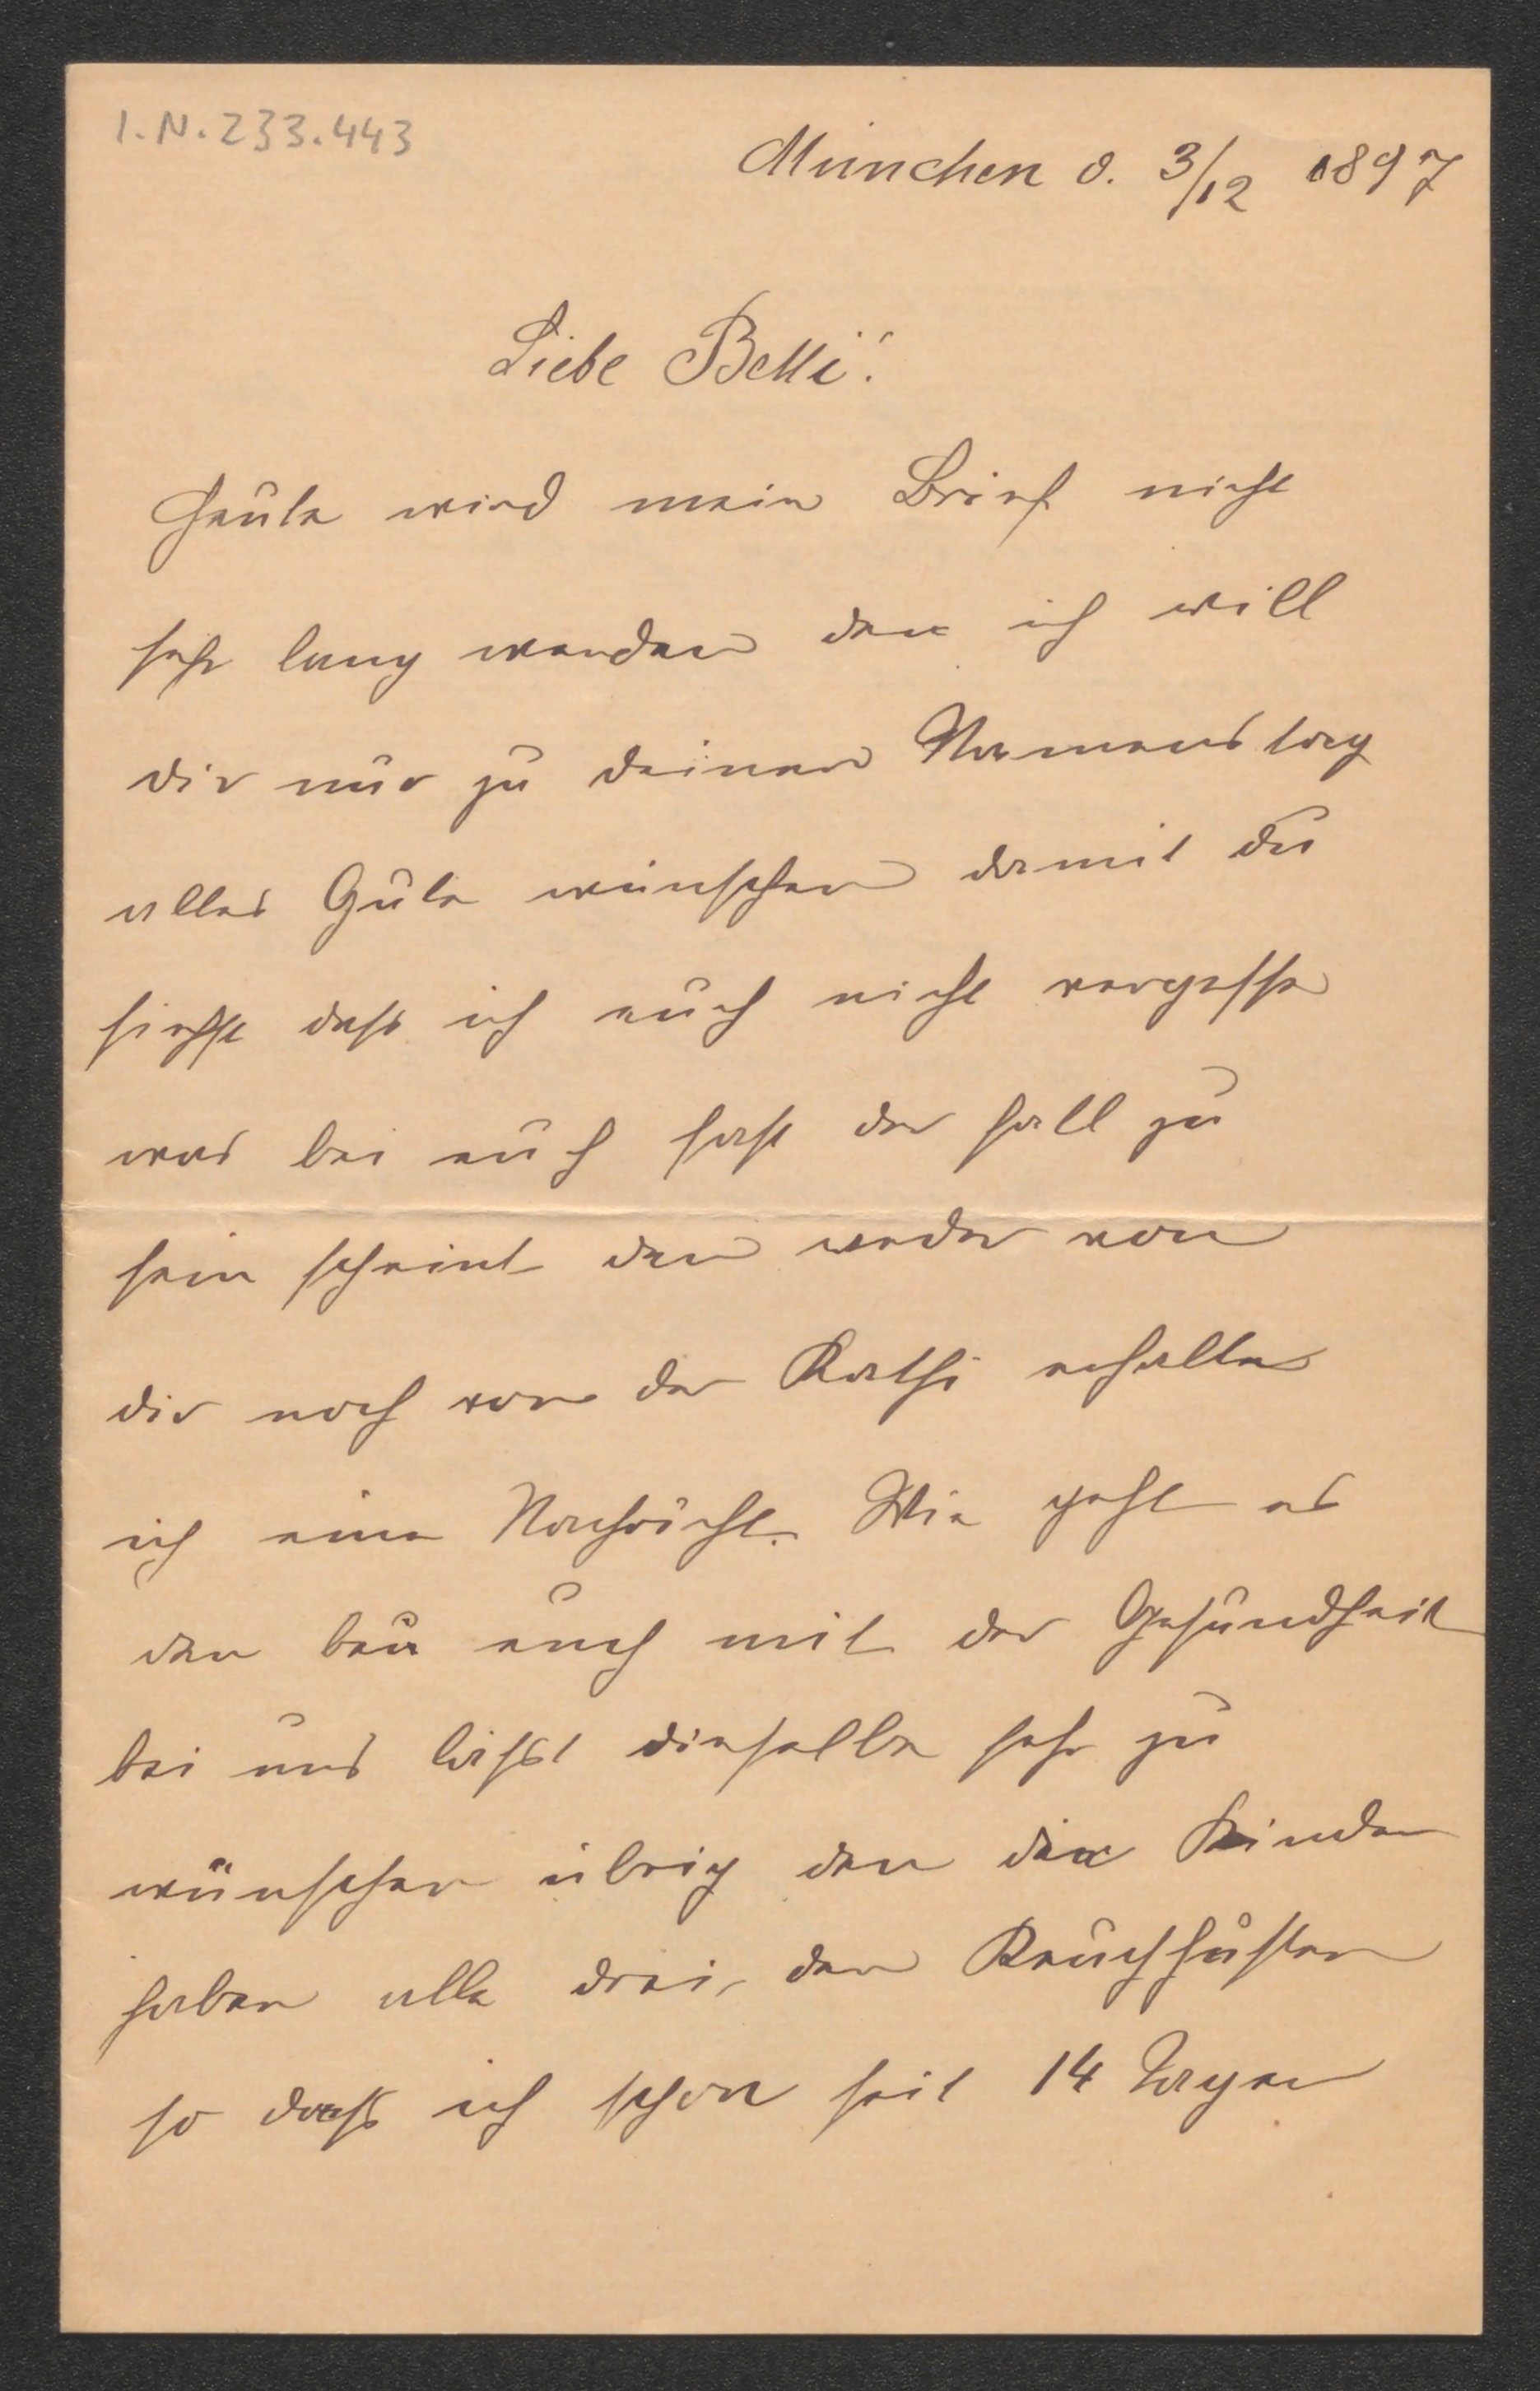 I.N.233.443
München d. 3/12 1897
Liebe Betti!
Heute wird mein Brief nicht
sehr lang werden den ich will
dir nur zu deinen Namenstag
alles Gute wünschen damit du
siehst daß ich euch nicht vergesse
was bei euch fast der fall zu
sein scheint den weder von
dir noch von der Kathi erhalte
ich eine Nachricht. Wie geht es
den bei euch mit der Gesundheit
bei uns läßt dieselbe sehr zu
wünschen übrig den die Kinder
haben alle drei den Keuchhusten
so daß ich schon seit 14 Tagen